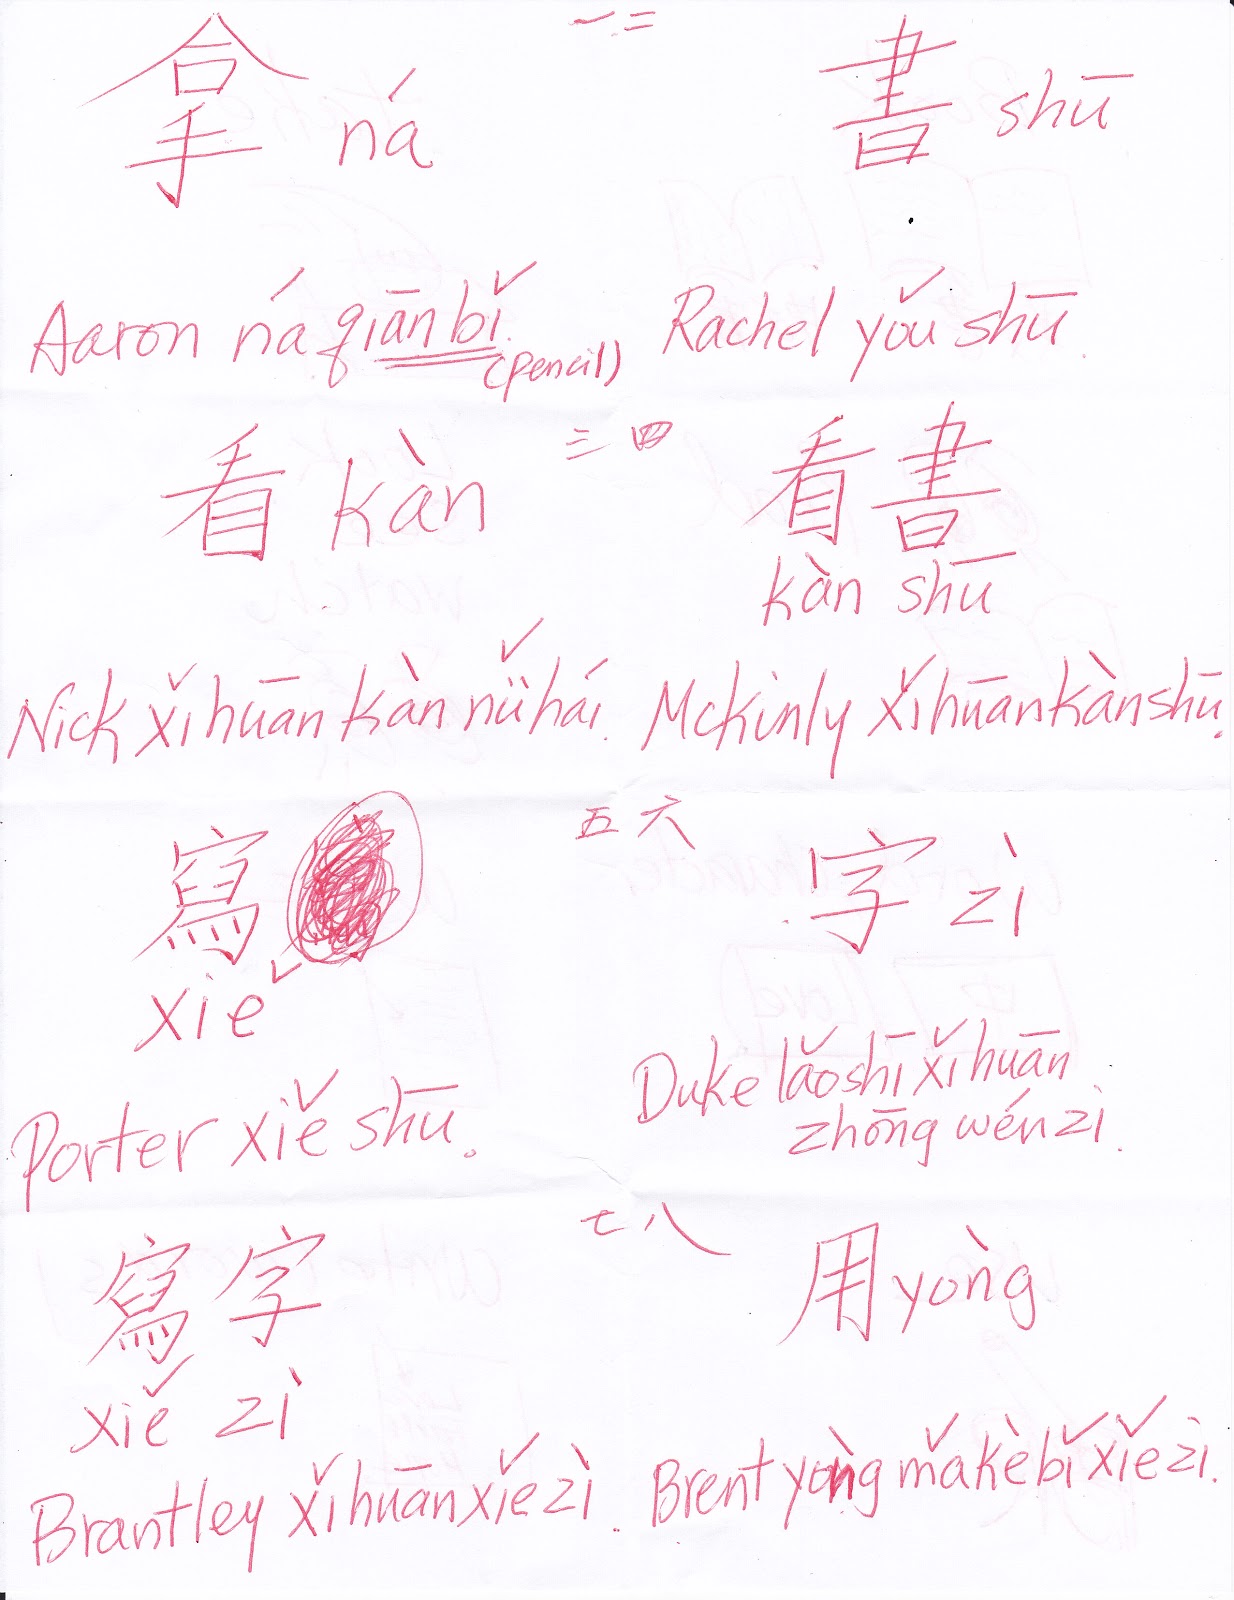 一 二
拿 ná
書 shū
Aaron ná qiānbǐ.
(pencil)
Rachel yǒu shū.
三 四
看 kàn
看書
kàn shū
Nick xǐhuān kàn nǚhái.
Mckinly xǐhuān kànshū.
五 六
寫
xiě
字 zì
Porter xiě shū.
Duke lǎoshī xǐhuān
zhōng wén zì.
七 八
寫字
xiě zì
用 yòng
Brantley xǐhuān xiězì.
Brent yòng mǎkèbǐ xiězì.